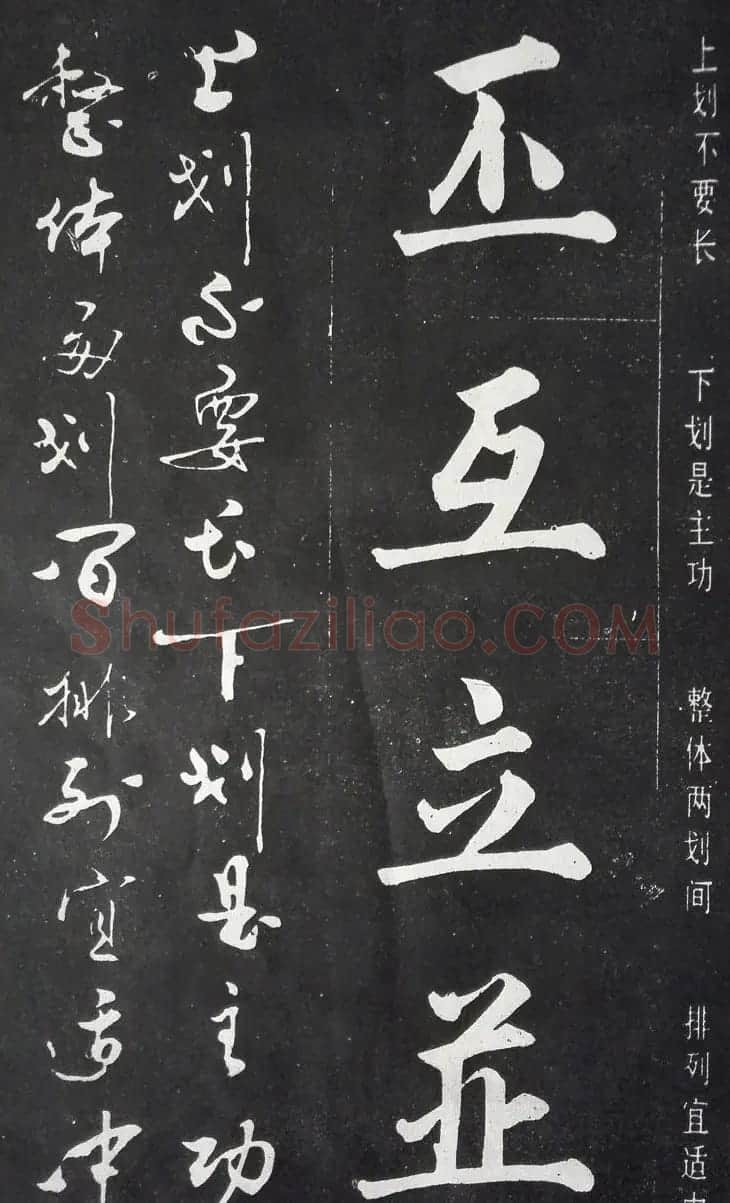 上划不要长 下划是主功 整体两划间 排列宜适中
丕互立並
上划不要长下划是主功
整体两划间排列宜适中
Shufaziliao.COM